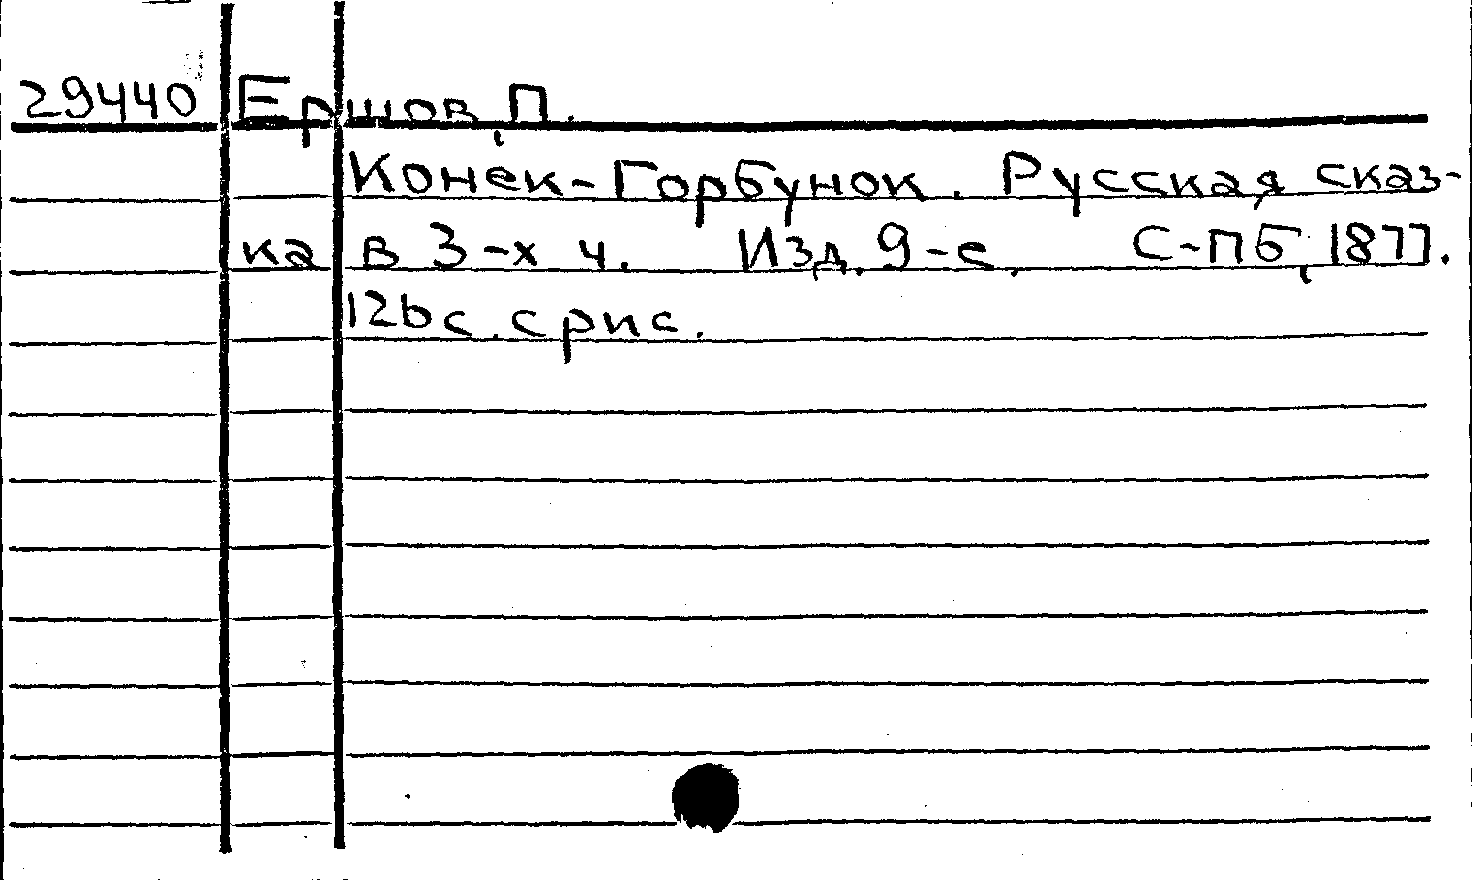 29440 Ершов, П.
Конек-Горбунок. Русская сказ-
ка в 3-х ч. Изд. 9-е. С-Пб, 1877.
126 с. с рис.